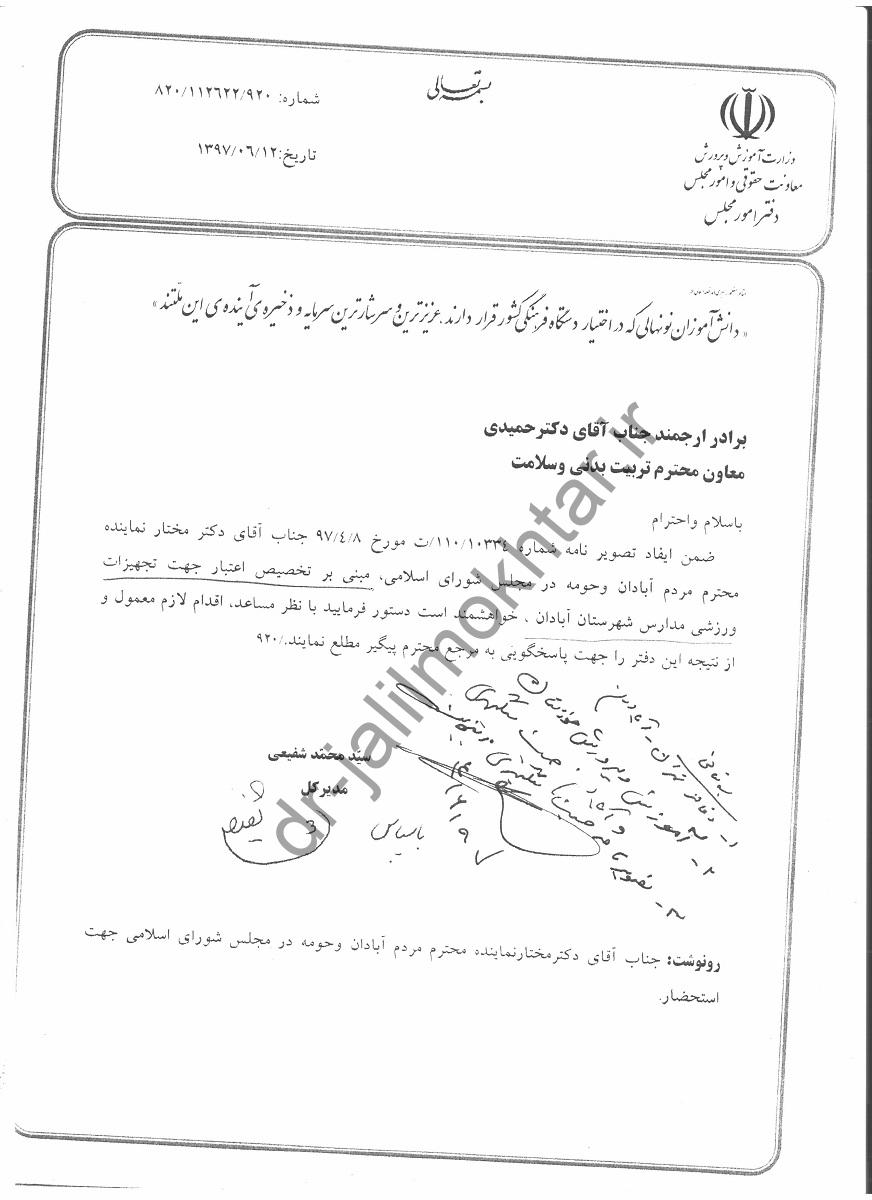 بسمه تعالی
وزارت آموزش و پرورش
معاونت حقوقی و امور مجلس
دفتر امور مجلس
شماره: ۸۲۰/۱۱۲۶۲۲/۹۲۰
تاریخ: ۱۳۹۷/۰۶/۱۲
« دانش‌آموزان نونهالی که در اختیار دستگاه فرهنگی کشور قرار دارند. عزیزترین و سرشارترین سرمایه و ذخیره‌ی آینده‌ی این ملّتند »
برادر ارجمند جناب آقای دکترحمیدی
معاون محترم تربیت بدنی وسلامت
باسلام واحترام
ضمن ایفاد تصویر نامه شماره ۱۱۰/۱۰۳۳۴/ت مورخ ۹۷/۴/۸ جناب آقای دکتر مختار نماینده
محترم مردم آبادان وحومه در مجلس شورای اسلامی، مبنی بر تخصیص اعتبار جهت تجهیزات
ورزشی مدارس شهرستان آبادان ، خواهشمند است دستور فرمایید با نظر مساعد، اقدام لازم معمول و
از نتیجه این دفتر را جهت پاسخگویی به مرجع محترم پیگیر مطلع نمایند./۹۲۰
سیّد محمّد شفیعی
مدیرکل
باسپاس
رونوشت: جناب آقای دکترمختارنماینده محترم مردم آبادان وحومه در مجلس شورای اسلامی جهت
استحضار.
dr-jalilmokhtar.ir